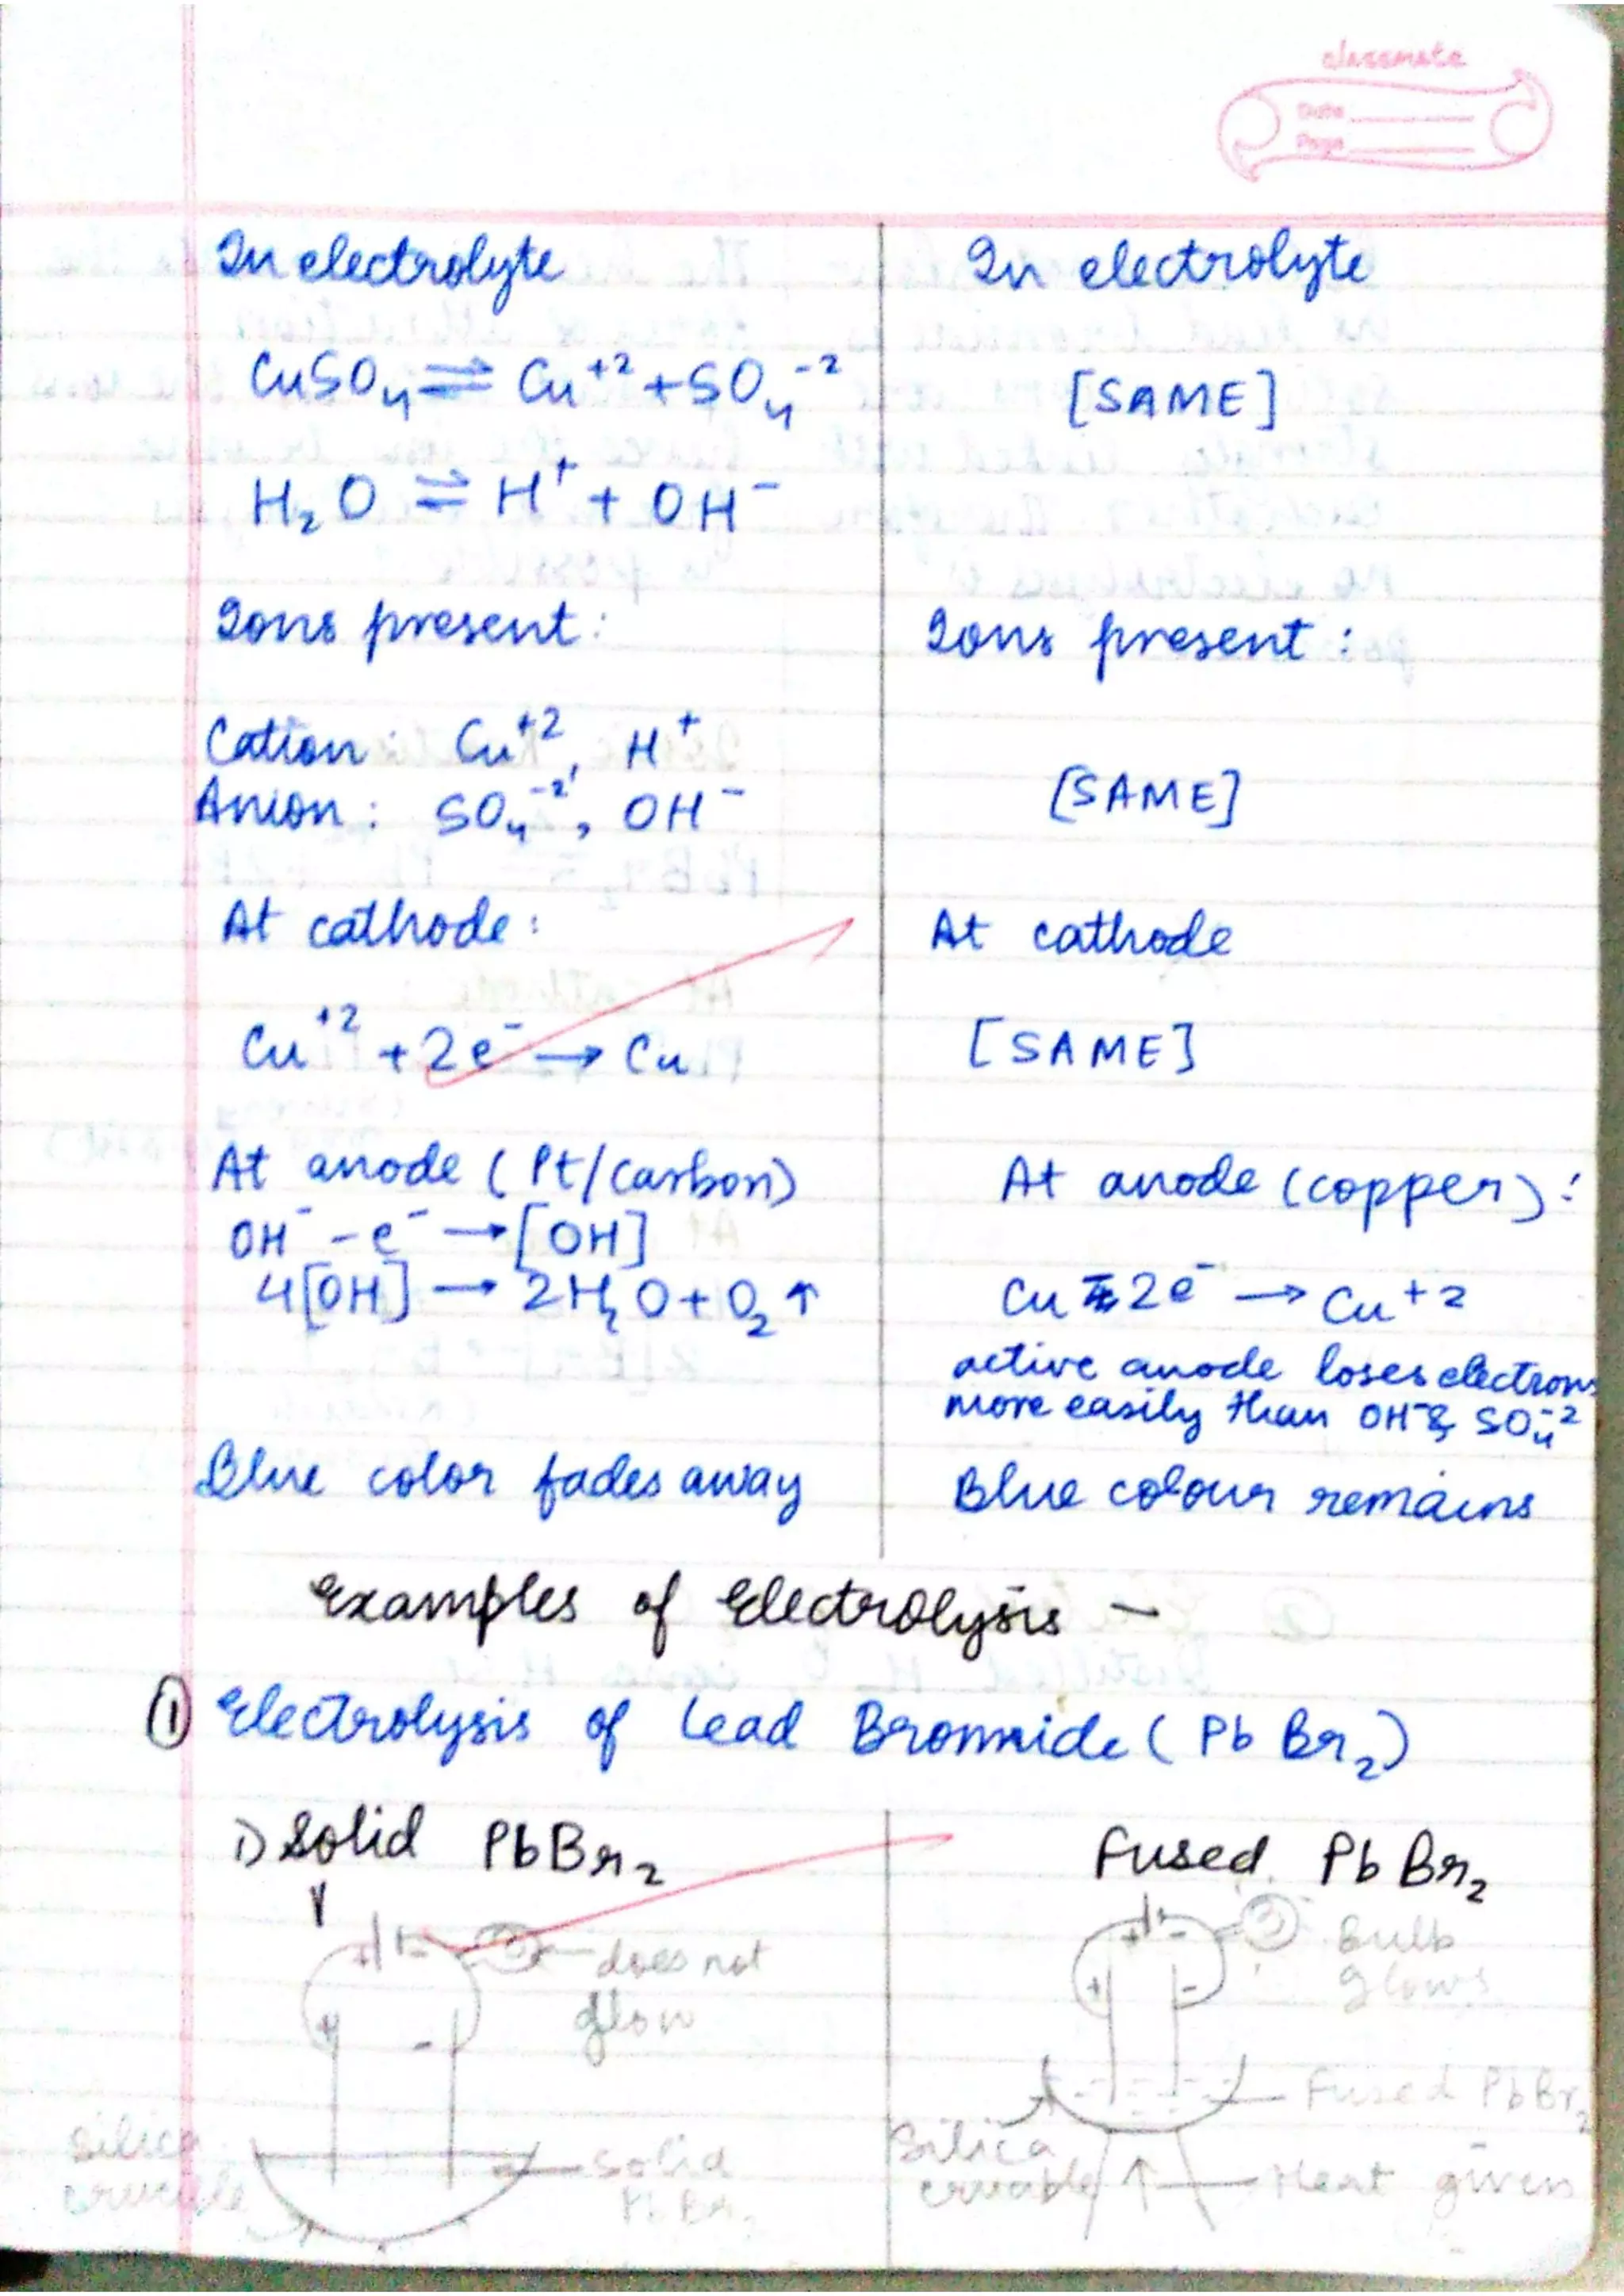 classmate
Date
Page
In electrolyte
CuSO₄ ⇌ Cu⁺² + SO₄⁻²
H₂O ⇌ H⁺ + OH⁻
Ions present:
Cation: Cu⁺², H⁺
Anion: SO₄⁻², OH⁻
At cathode:
Cu⁺² + 2e⁻ → Cu
At anode (Pt/carbon)
OH⁻ - e⁻ → [OH]
4[OH] → 2H₂O + O₂ ↑
Blue color fades away
In electrolyte
[SAME]
Ions present:
[SAME]
At cathode
[SAME]
At anode (copper):
Cu - 2e⁻ → Cu⁺²
active anode loses electrons
more easily than OH⁻ & SO₄⁻²
Blue colour remains
Examples of Electrolysis -
① Electrolysis of Lead Bromide (PbBr₂)
i) Solid PbBr₂
+ -
does not
glow
+ -
silica
crucible
solid
PbBr₂
Fused PbBr₂
+ -
Bulb
glows
+ -
Fused PbBr₂
Silica
crucible
Heat given